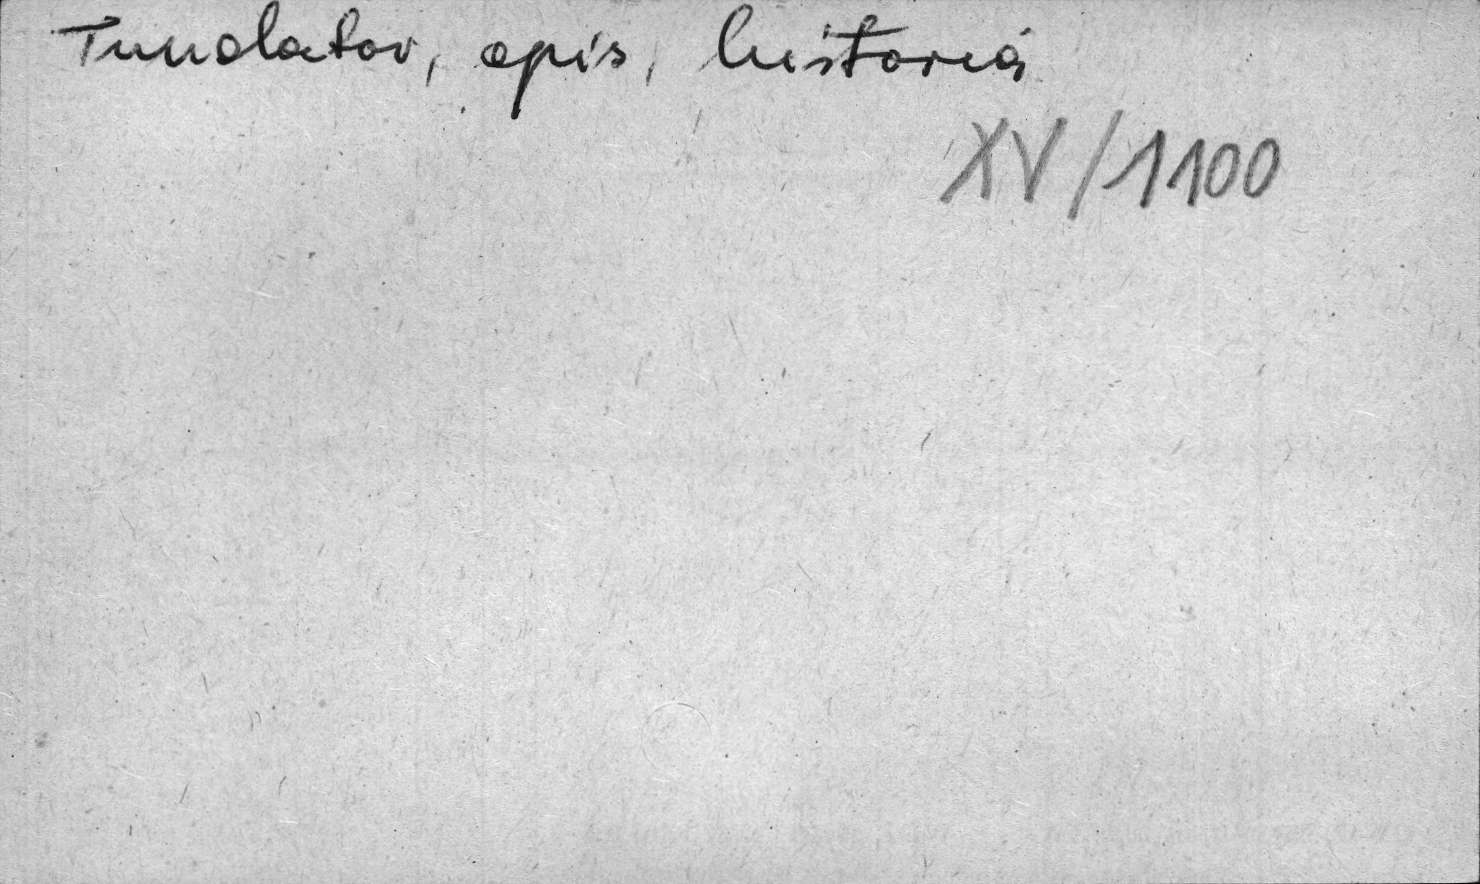 Tundatov, opis, historiá
XV/1100